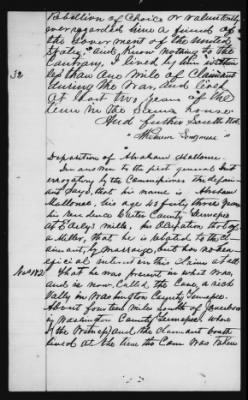 rebellion of Choice or voluntarily
ever regarded him a friend of
the Government of the United
States and know nothing to the
Contrary. I lived by him within
less than one mile of Claimant
During the War, and lived
at least two years of the
time in the same house
And further Saith Not.
32
Deposition of Abraham Mallonee.
In answer to the first general Inter
rogatory by the Commissioner the depon
ent says, that his name is Abraham
Mallonee, his age 43 forty three years
his residence Carter County Tennessee
at Eadens Mills, his occupation that of
a Miller, that he is related to the Cla
imant by marriage, but has no ben
eficial interest in this claim at all.
No 182
That he was present in what was,
and is now Called the Cave, a rich
Valley in Washington County Tennessee.
About fourteen Miles South of Jonesboro
in Washington County Tennessee, where
(the Witness) and the Claimant both
lived at the time the Corn was taken